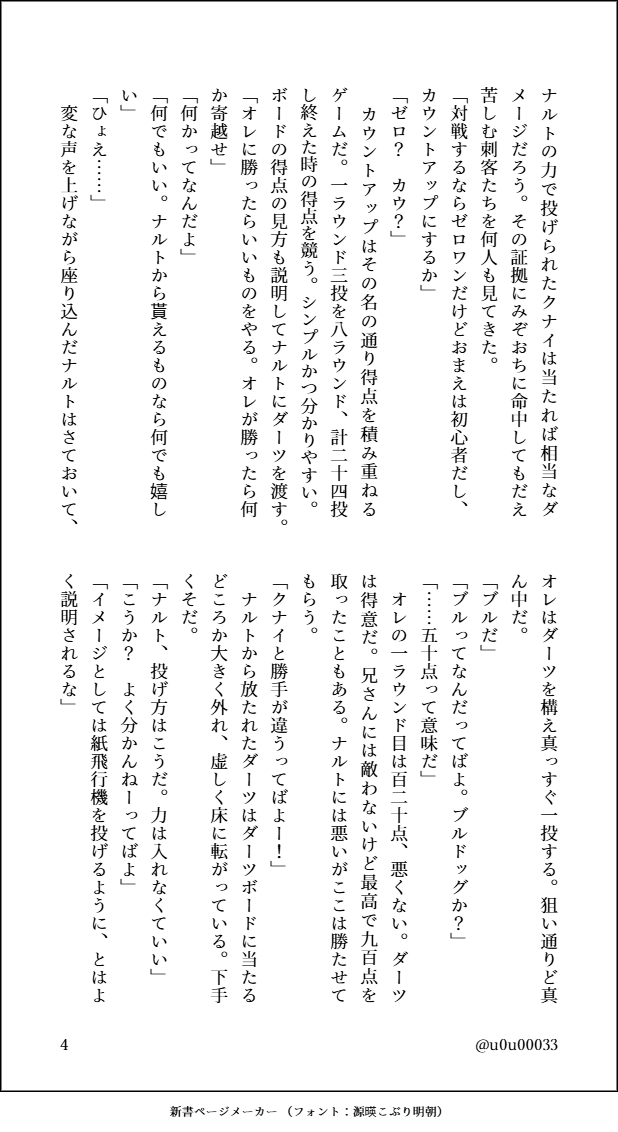 ナルトの力で投げられたクナイは当たれば相当なダ
メージだろう。その証拠にみぞおちに命中してもだえ
苦しむ刺客たちを何人も見てきた。
「対戦するならゼロワンだけどおまえは初心者だし、
カウントアップにするか」
「ゼロ？　カウ？」
　カウントアップはその名の通り得点を積み重ねる
ゲームだ。一ラウンド三投を八ラウンド、計二十四投
し終えた時の得点を競う。シンプルかつ分かりやすい。
ボードの得点の見方も説明してナルトにダーツを渡す。
「オレに勝ったらいいものをやる。オレが勝ったら何
か寄越せ」
「何かってなんだよ」
「何でもいい。ナルトから貰えるものなら何でも嬉し
い」
「ひょえ……」
　変な声を上げながら座り込んだナルトはさておいて、
オレはダーツを構え真っすぐ一投する。狙い通りど真
ん中だ。
「ブルだ」
「ブルってなんだってばよ。ブルドッグか？」
「……五十点って意味だ」
　オレの一ラウンド目は百二十点、悪くない。ダーツ
は得意だ。兄さんには敵わないけど最高で九百点を
取ったこともある。ナルトには悪いがここは勝たせて
もらう。
「クナイと勝手が違うってばよー！」
　ナルトから放たれたダーツはダーツボードに当たる
どころか大きく外れ、虚しく床に転がっている。下手
くそだ。
「ナルト、投げ方はこうだ。力は入れなくていい」
「こうか？　よく分かんねーってばよ」
「イメージとしては紙飛行機を投げるように、とはよ
く説明されるな」
4
@u0u00033
新書ページメーカー（フォント：源暎こぶり明朝）